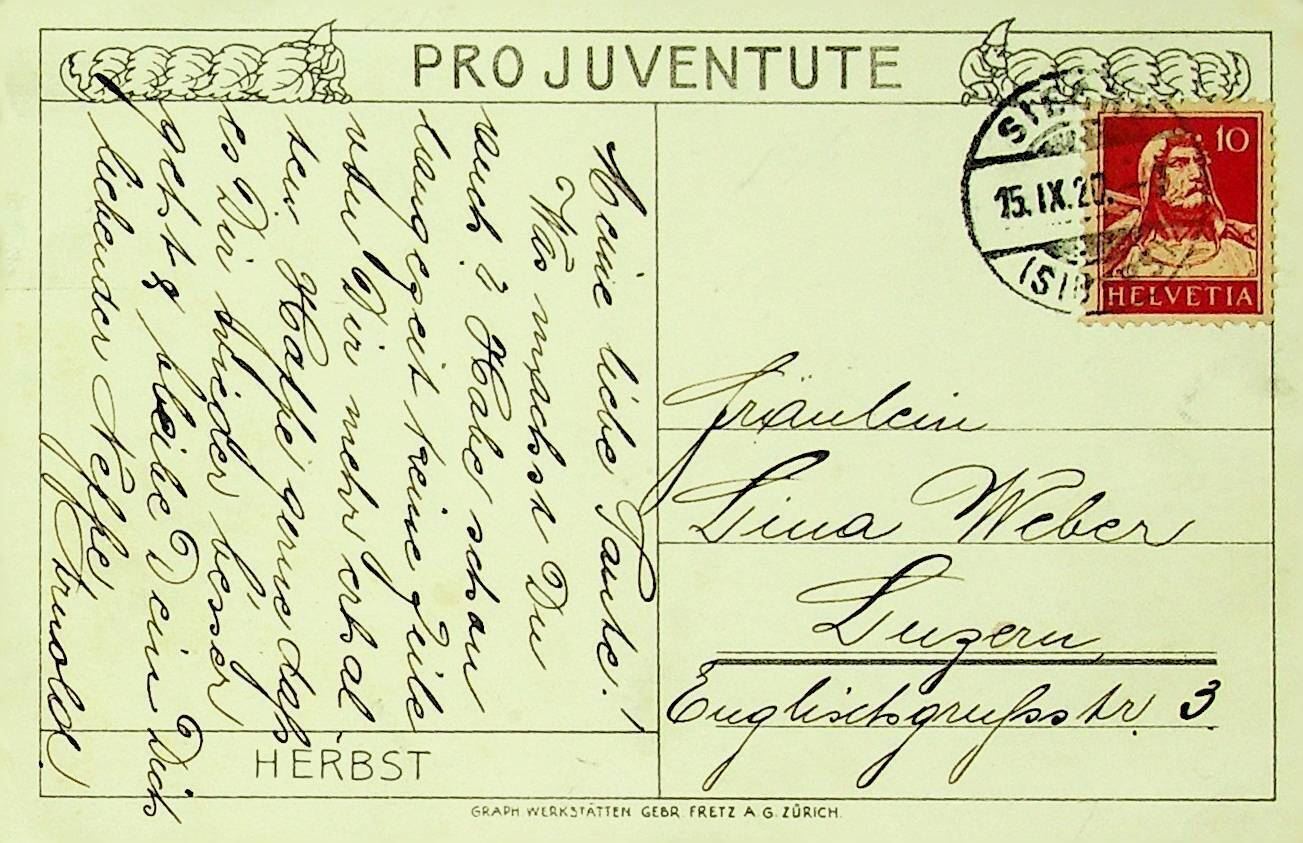 PRO JUVENTUTE
Meine liebe Tante!
Was machst Du
auch? Habe schon
langezeit keine Zeile
von Dir mehr erhal
ten. Hoffe gerne daß
es Dir wieder besser
geht & bleibe Dein Dich
liebender Neffe
Arnold
HERBST
10
HELVETIA
15.IX.20.
Fräulein
Lina Weber
Luzern
Englischgrußstr 3
GRAPH. WERKSTÄTTEN GEBR. FRETZ A.G. ZÜRICH.